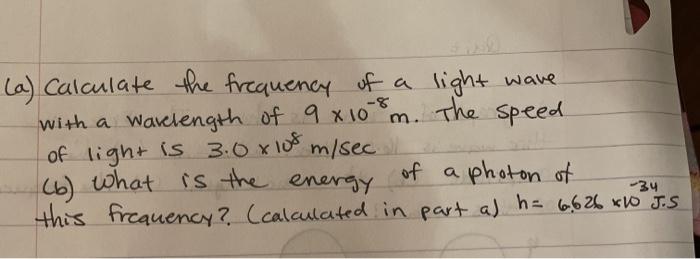 (a) Calculate the frequency of a light wave
with a wavelength of 9 x 10⁻⁸ m. The speed
of light is 3.0 x 10⁸ m/sec
(b) What is the energy of a photon of
this frequency? (calculated in part a) h = 6.626 x 10⁻³⁴ J.S